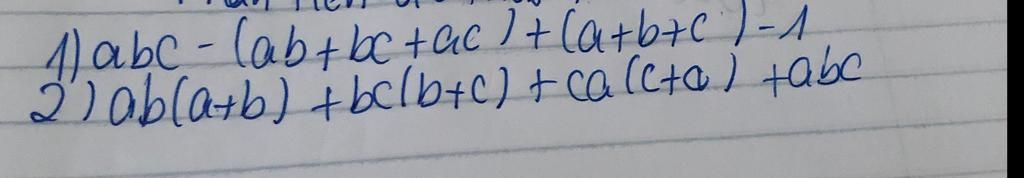 1) abc - (ab+bc+ac) + (a+b+c) - 1
2) ab(a+b) + bc(b+c) + ca(c+a) + abc